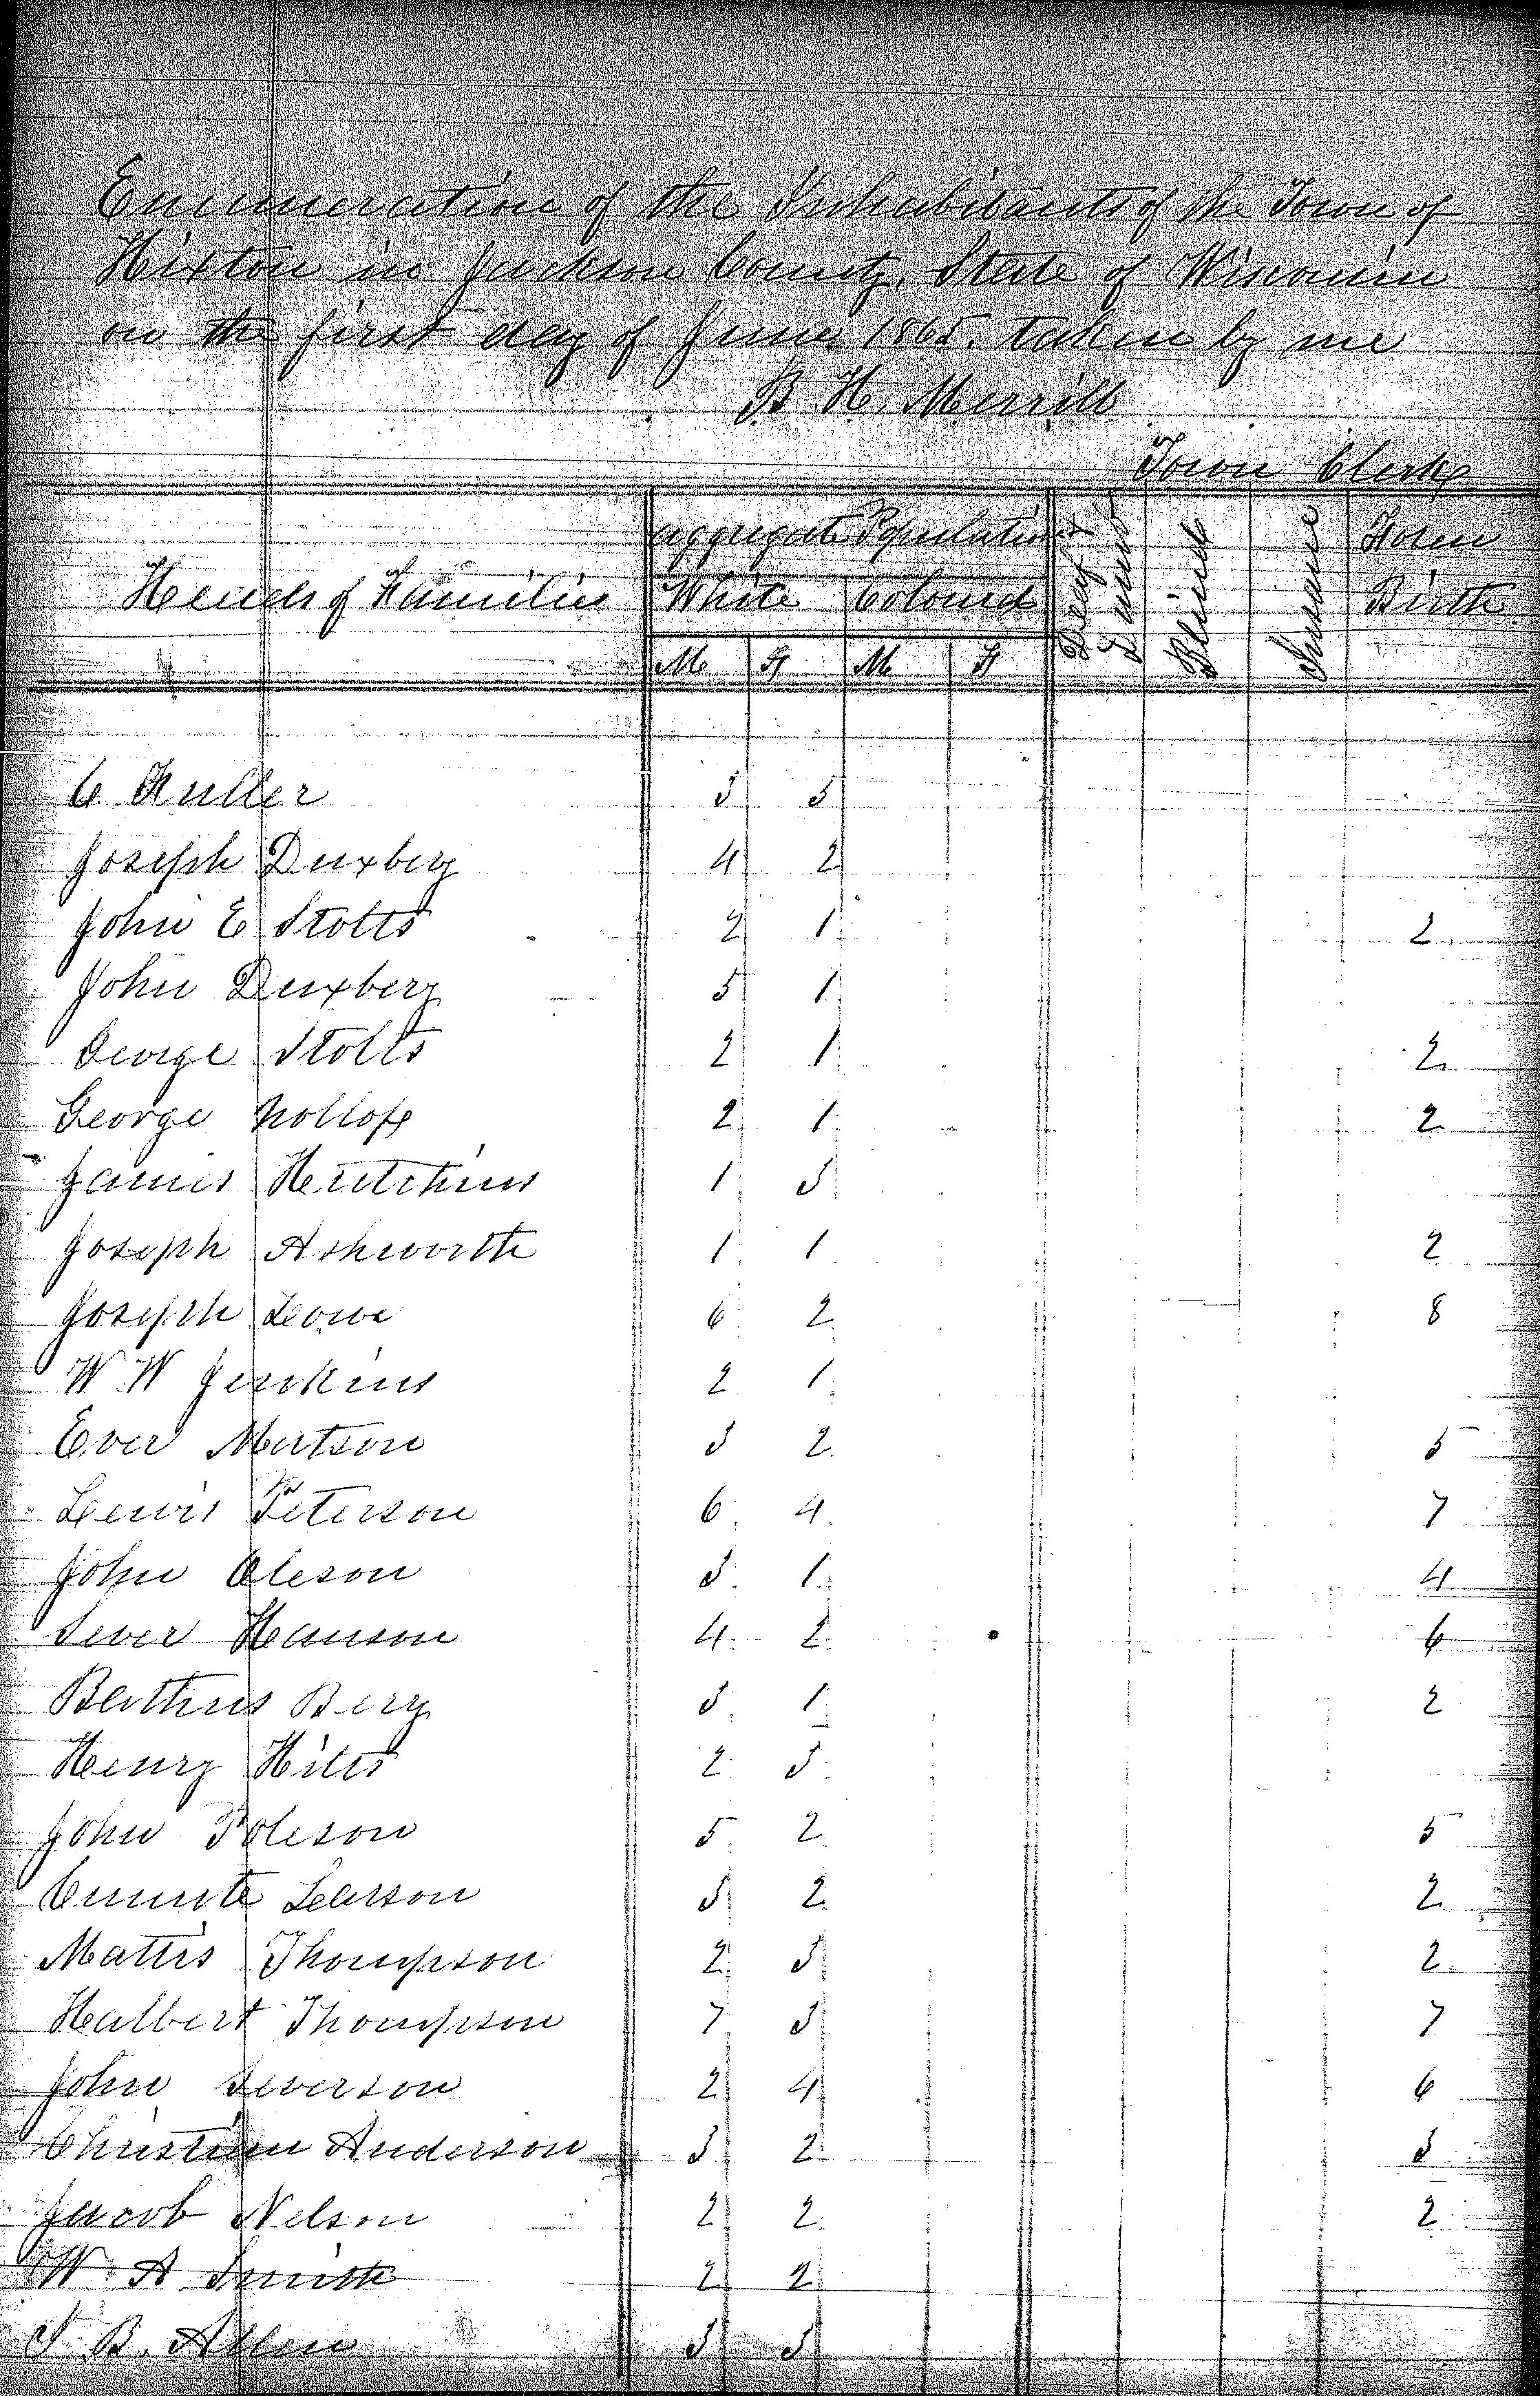 Enumeration of the Inhabitants of the Town of
Hixton in Jackson County, State of Wisconsin
on the first day of June 1865. taken by me
B. H. Merrill
Town Clerk
Heads of Families aggregate Population Deaf & Dumb Blind Insane Foren Birth
White Colored
M F M F
C Fuller 3 5
Joseph Duxbery 4 2
John E Stolts 2 1 2
John Duxbery 5 1
George Stolts 2 1 2
George 2 1 2
James Hutchins 1 3
Joseph Ashworth 1 1 2
Joseph Lowe 6 2 8
W W Jenkins 2 1
Ever Matson 3 2 5
Lewis Peterson 6 4 7
John Oleson 3 1 4
Sever Hanson 4 2 6
Berthus Berg 3 1 2
Henry Hills 2 3
John Poleson 5 2 5
Cunute Larson 3 2 2
Mattis Thompson 2 3 2
Halbert Thompson 7 3 7
John Severson 2 4 6
Christian Anderson 3 2 3
Jacob Nelson 2 2 2
W A Smith 2 2
S B. Allen 3 3